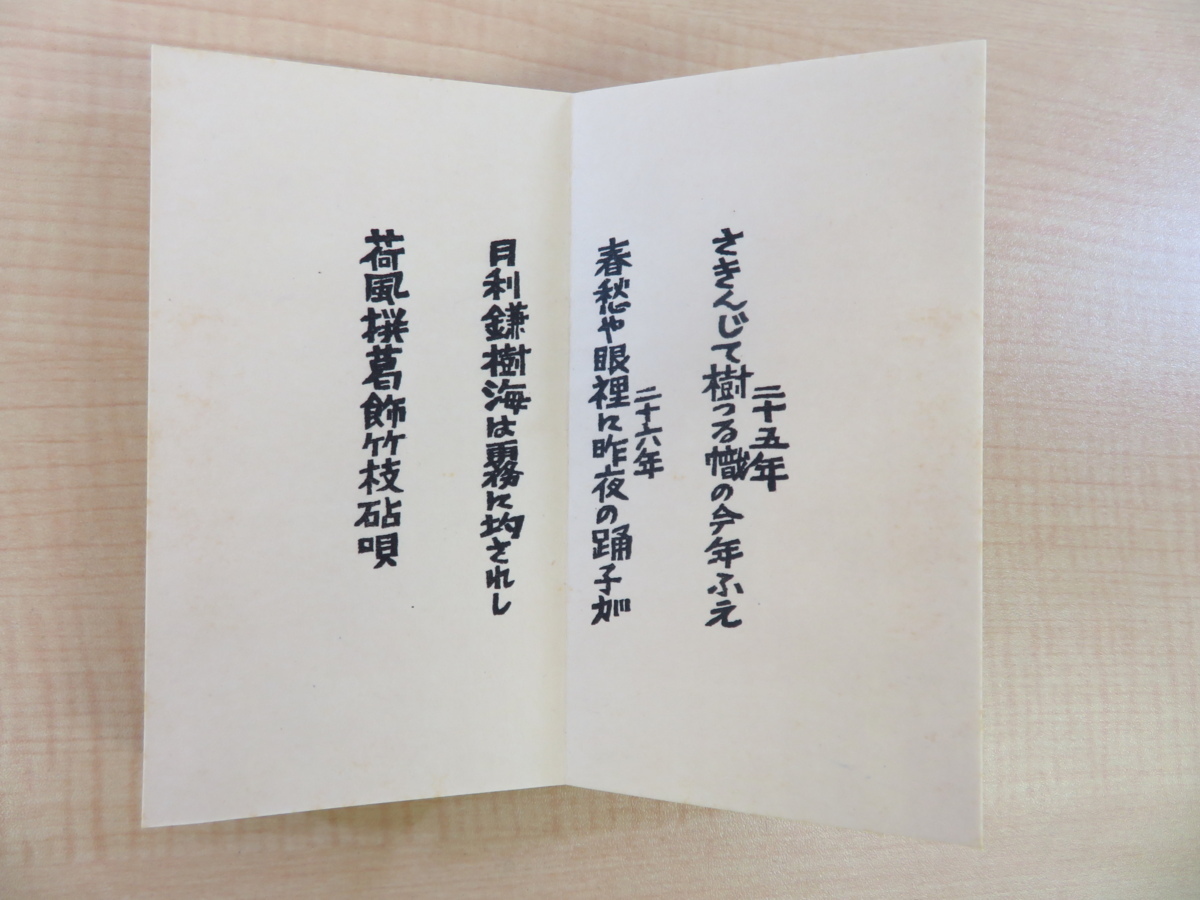 二十五年
さきんじて樹つる幟の今年ふえ
二十六年
春愁や眼裡に昨夜の踊子が
月利鎌樹海は霧に均されし
荷風撰葛飾竹枝砧唄